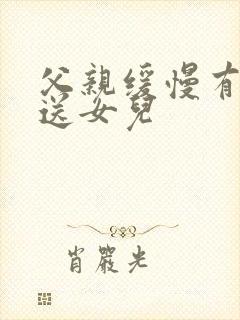 父親缓慢有
送女兒
肖嚴光